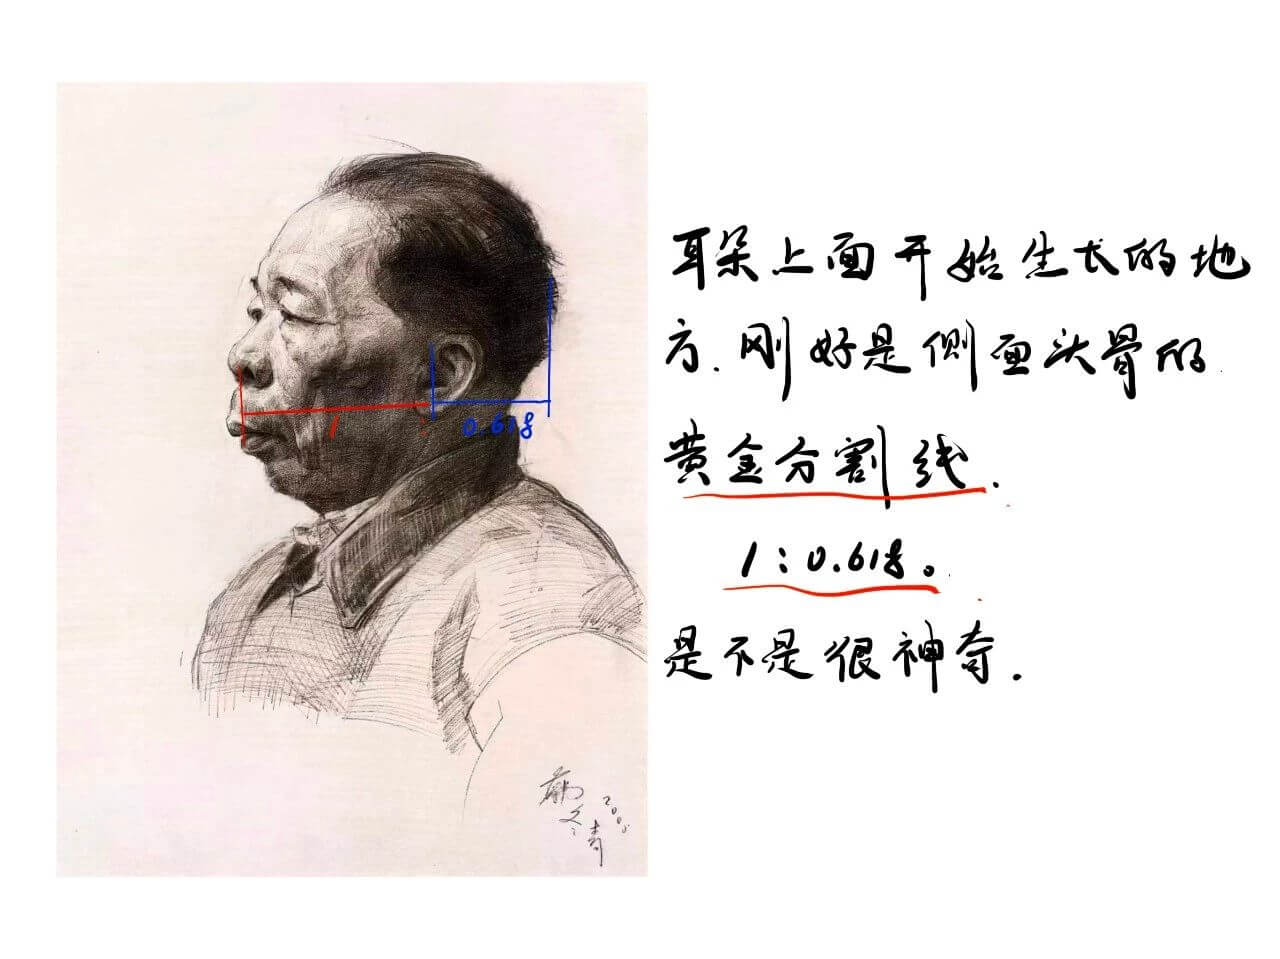 耳朵上面开始生长的地
方.刚好是侧面头骨的
黄金分割线.
1:0.618。
是不是很神奇.
1
0.618